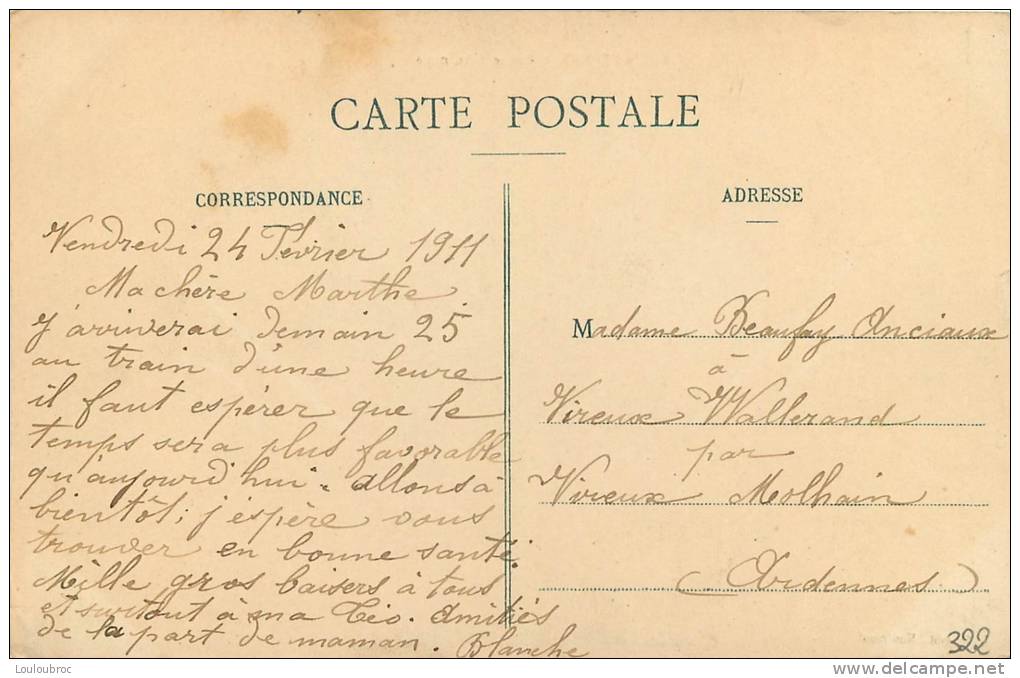 CARTE POSTALE
CORRESPONDANCE
Vendredi 24 Février 1911
Ma chère Marthe
J'arriverai demain 25
au train d'une heure
il faut espérer que le
temps sera plus favorable
qu'aujourd'hui. allons à
bientôt; j'espère vous
trouver en bonne santé.
Mille gros baisers à tous
et surtout à ma Céo. Amitiés
de la part de maman. Blanche
ADRESSE
Madame Beaufay Anciaux
à
Vireux Wallerand
par
Vireux Molhain
(Ardennes)
322
Louloubroc
delcampe.net